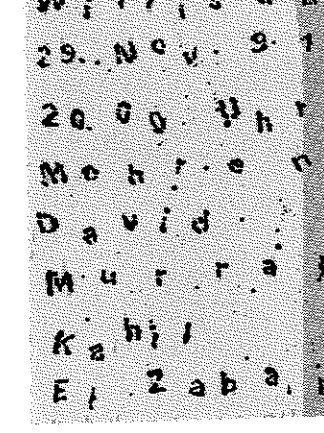 29. Nov. 91
20.00 Uhr
Mehr en
David
Murra
Kahil
El Zaba